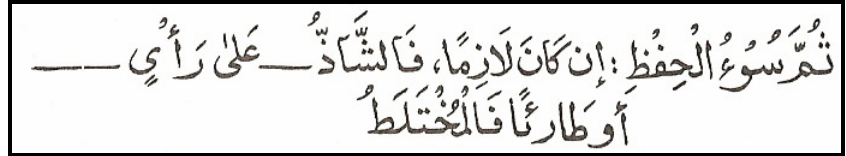 ثُمَّ سُوْءُ الْحِفْظِ : إِن كَانَ لَازِمًا، فَالشَّاذُّ — عَلىٰ رَأْيٍ —
أَو طَارِئًا فَالْمُخْتَلَطُ